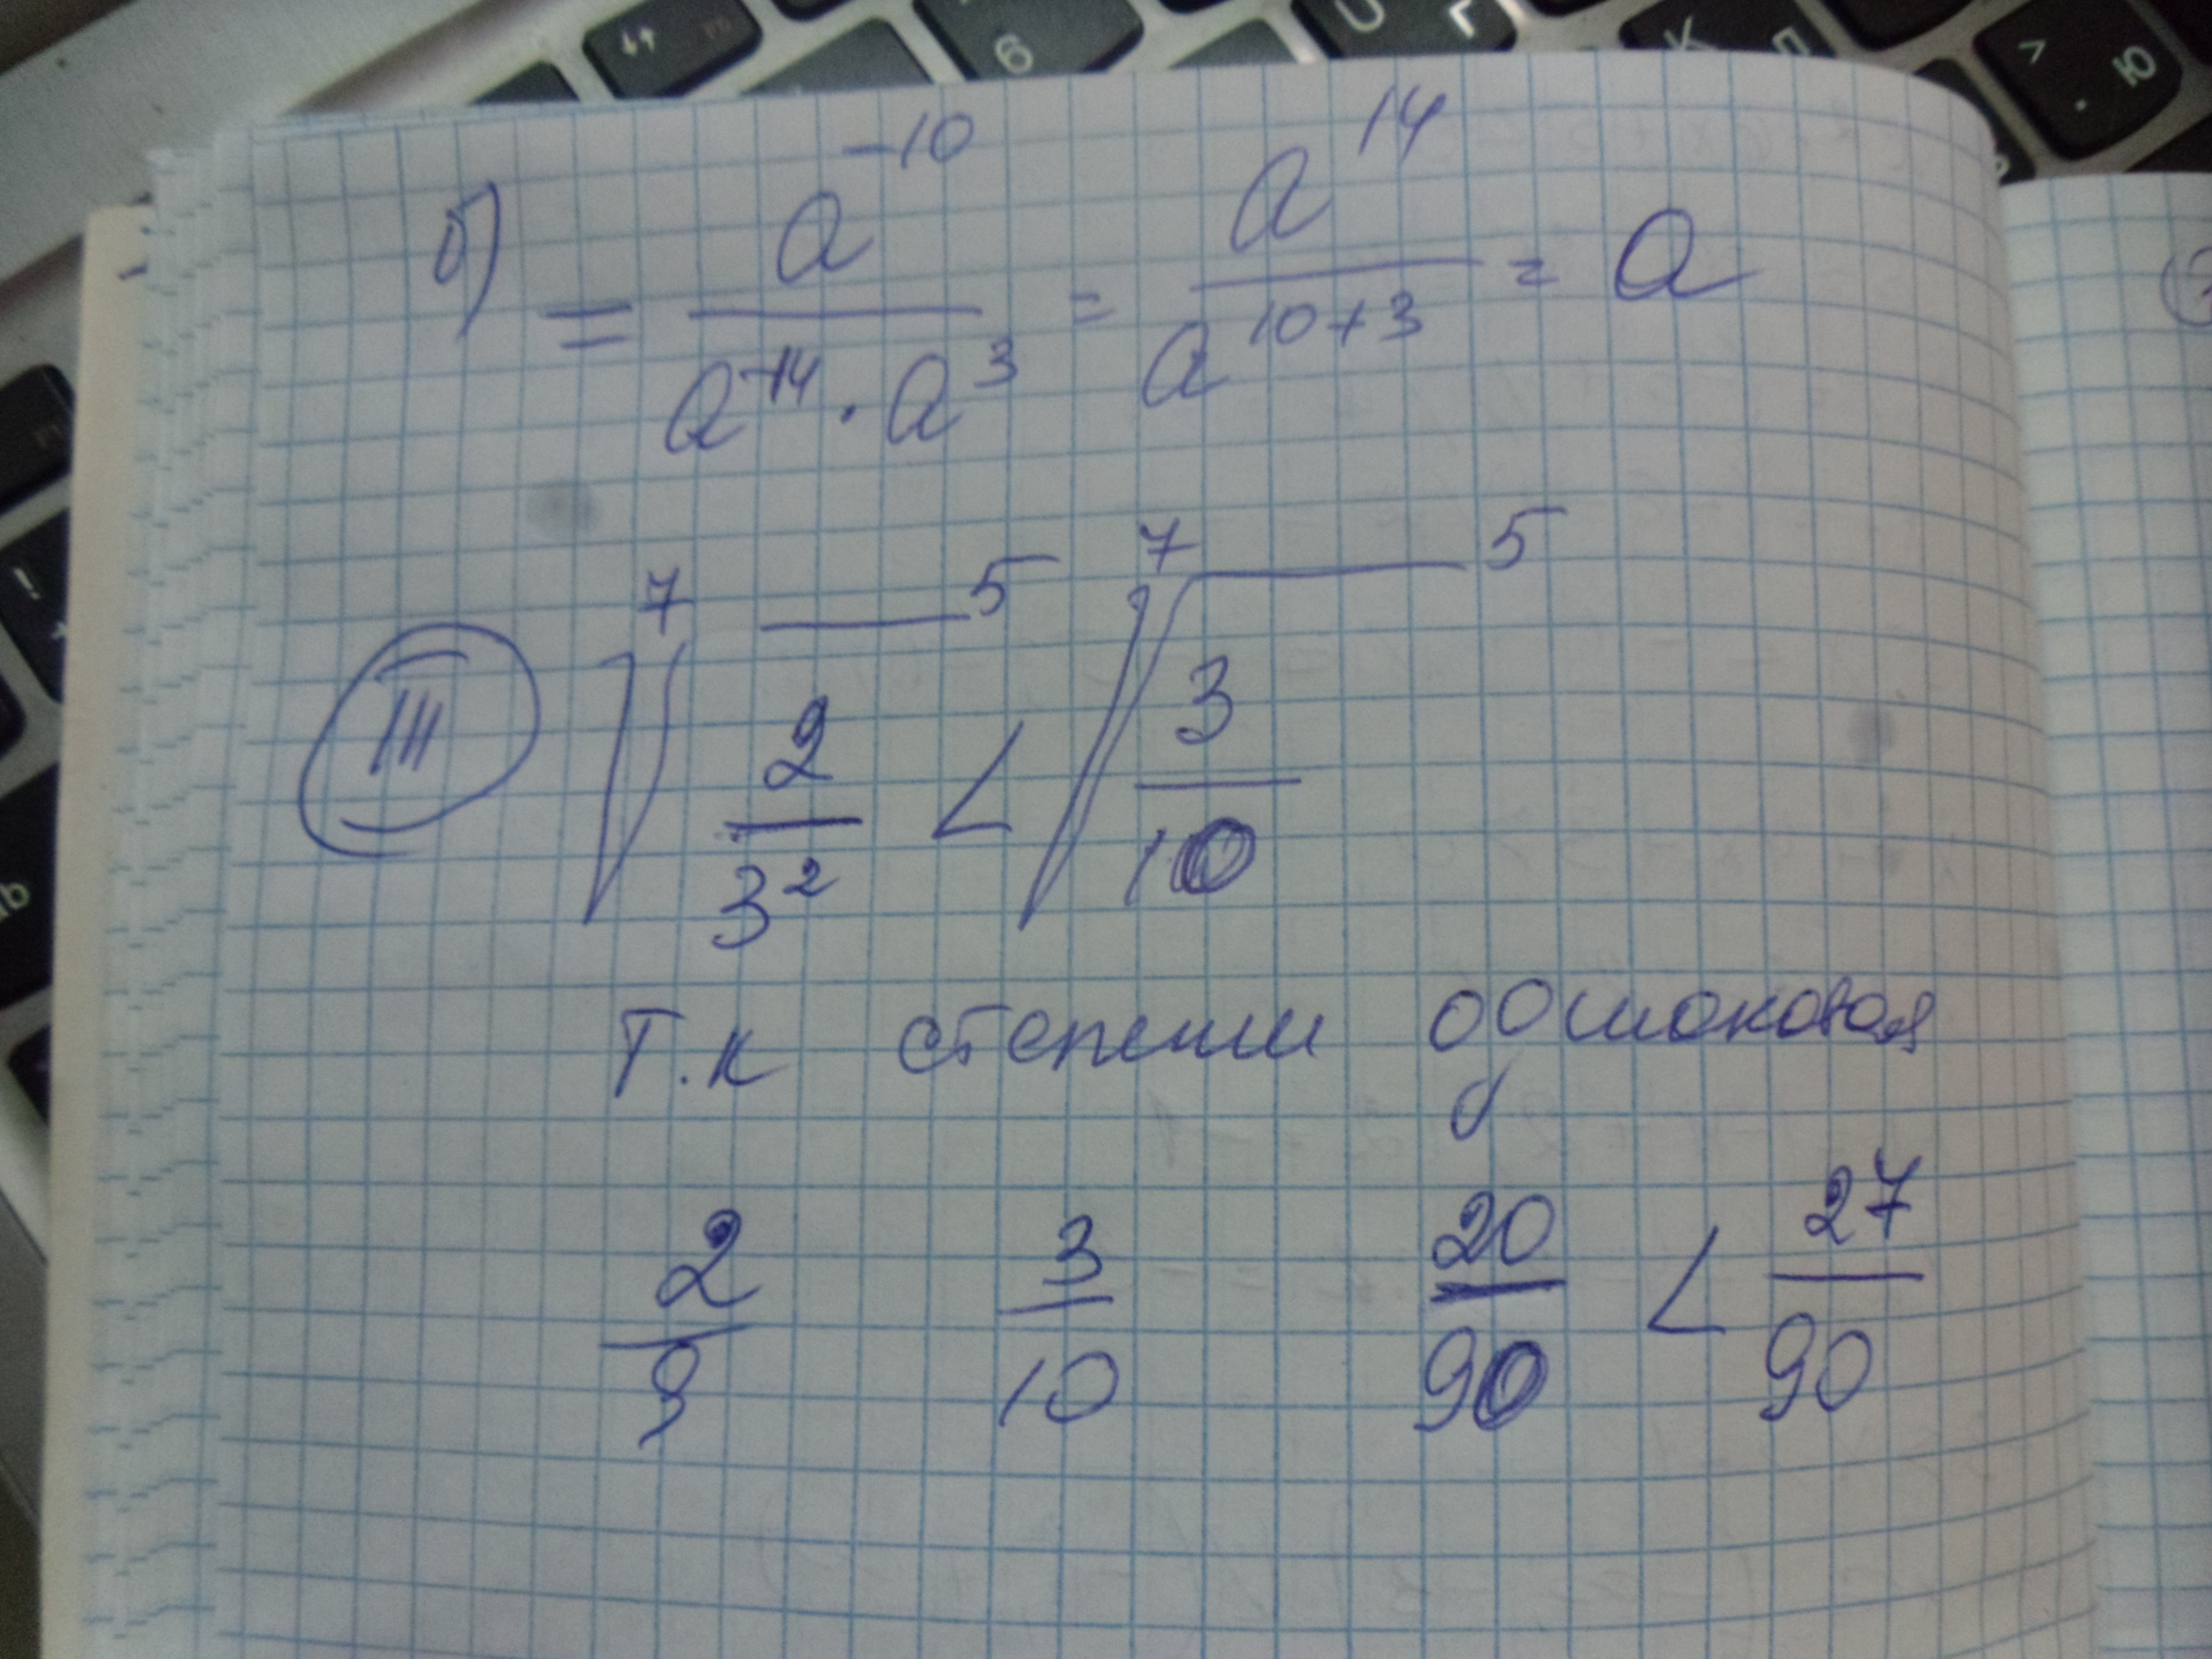 б) = a^-10 / (a^-14 · a^3) = a^14 / a^(10+3) = a
III ⁷√(2/3²)^5 < ⁷√(3/10)^5
Т.к степени одинаковая
2/9 3/10 20/90 < 27/90